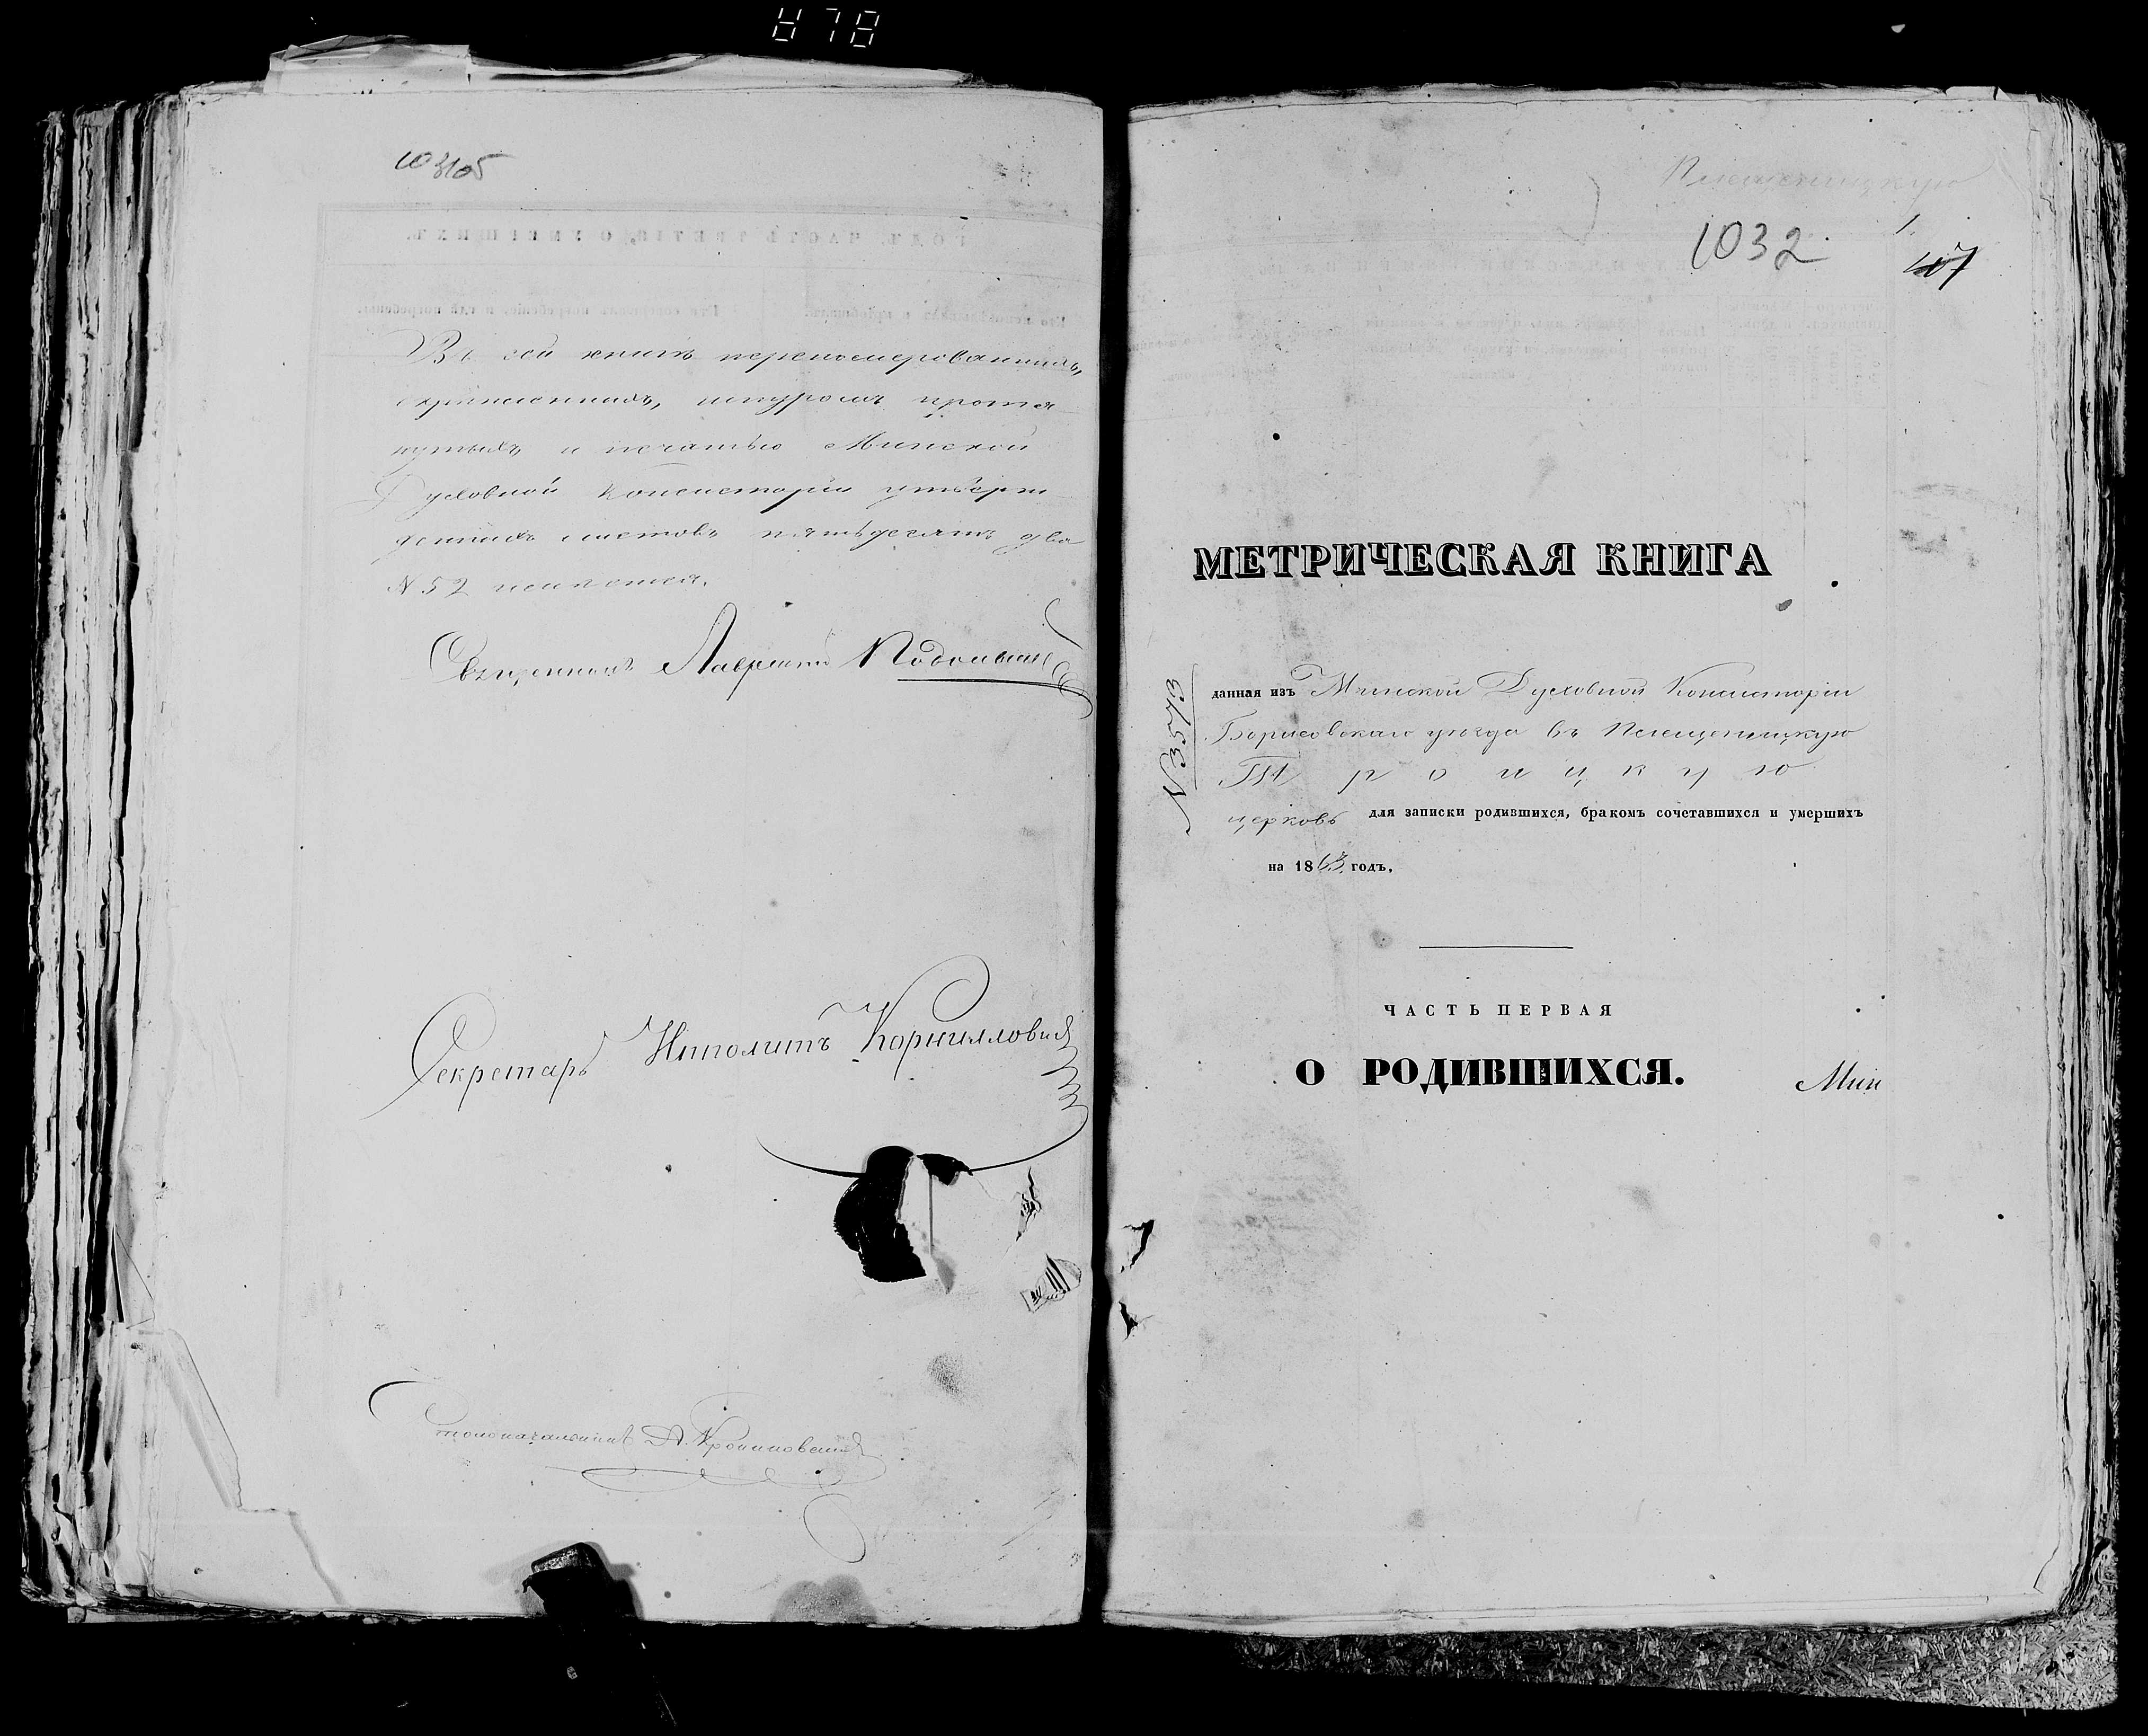 Въ сей книгѣ переномерованныхъ,
скрѣпленныхъ, шнуромъ протя-
нутыхъ и печатью Минской
Духовной Консисторіи утверж-
денныхъ листовъ пятьдесятъ два
N 52 исчтится.
Священникъ Лаврентій
Секретарь Ипполитъ Корниловичъ
Столоначальникъ А.
Плещеницкую
1032
1
107
МЕТРИЧЕСКАЯ КНИГА
N 3573
данная изъ Минской Духовной Консисторіи
Борисовскаго уѣзда въ Плещеницкую
Троицкую
церковь для записки родившихся, бракомъ сочетавшихся и умершихъ
на 1863 годъ,
ЧАСТЬ ПЕРВАЯ
О РОДИВШИХСЯ.
Мин